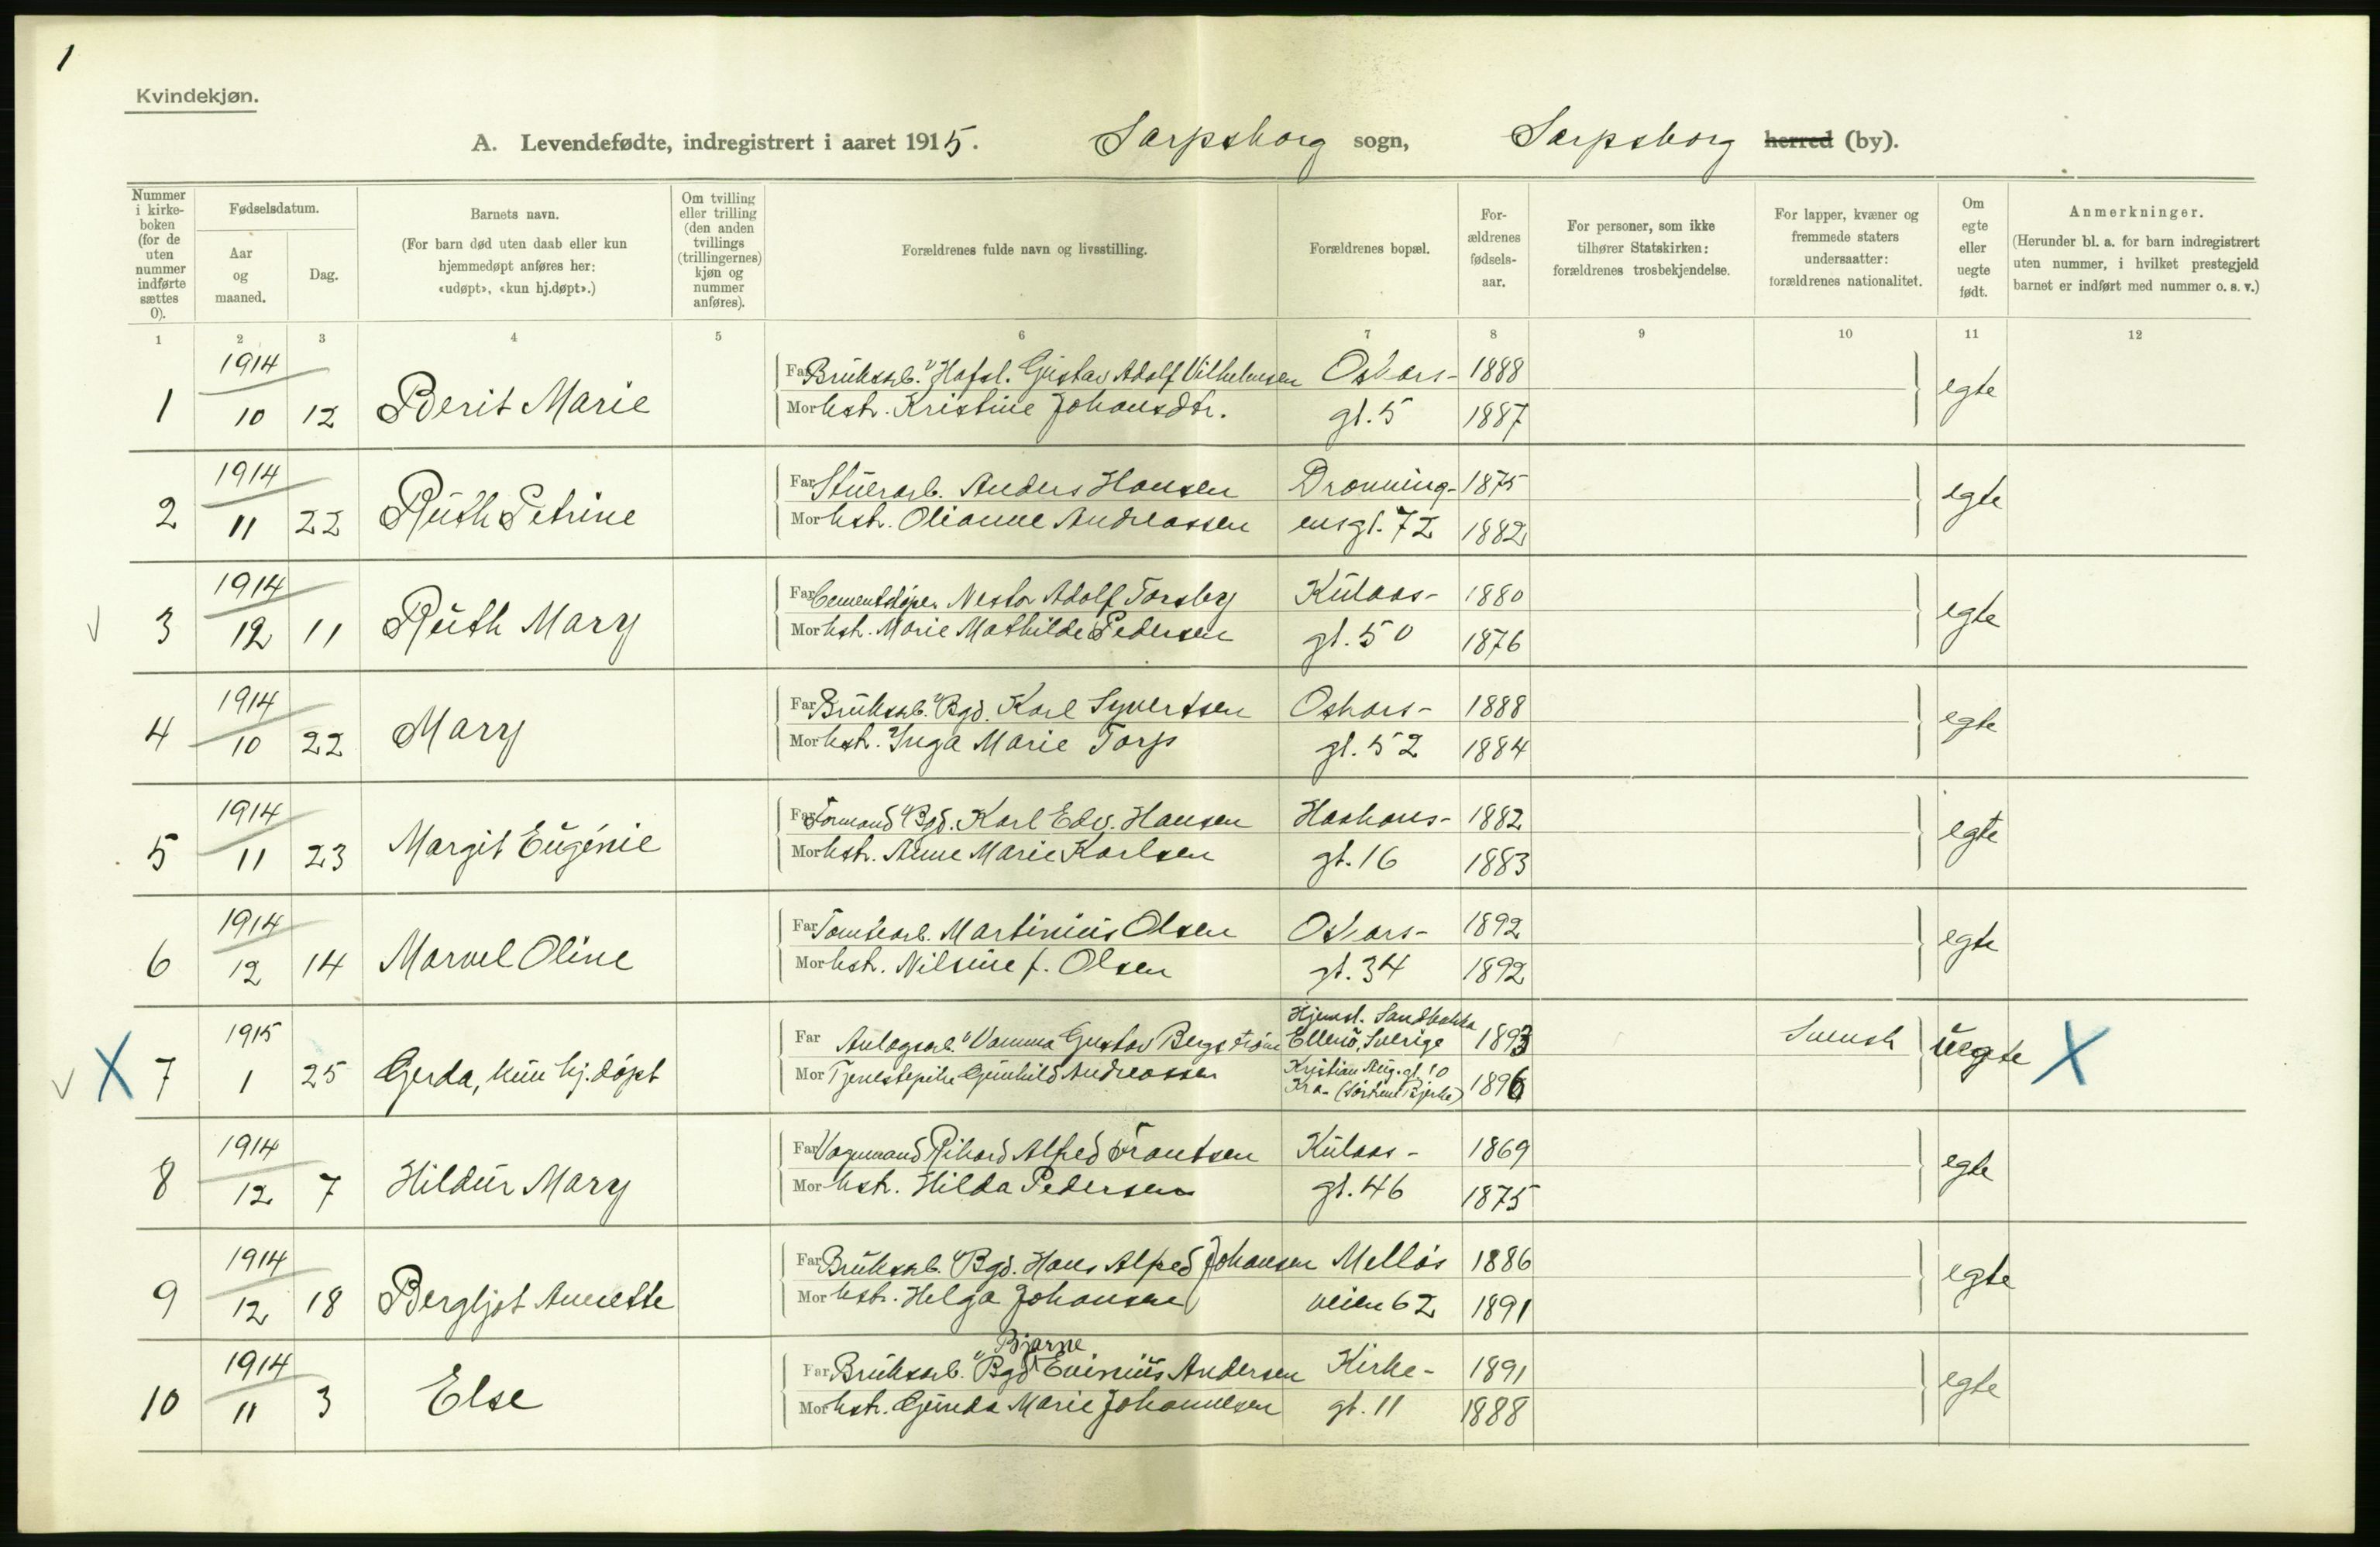 1
Kvindekjøn.
A. Levendefødte, indregistrert i aaret 1915. Sarpsborg sogn, Sarpsborg herred (by).
Nummer i kirke-boken (for de uten nummer indførte sættes 0).
Fødselsdatum.
Aar og maaned.
Dag.
Barnets navn.
(For barn død uten daab eller kun hjemmedøpt anføres her: «udøpt», «kun hj.døpt».)
Om tvilling eller trilling (den anden tvillings (trillingernes) kjøn og nummer anføres).
Forældrenes fulde navn og livsstilling.
Forældrenes bopæl.
For-ældrenes fødsels-aar.
For personer, som ikke tilhører Statskirken: forældrenes trosbekjendelse.
For lapper, kvæner og fremmede staters undersaatter: forældrenes nationalitet.
Om egte eller uegte født.
Anmerkninger.
(Herunder bl. a. for barn indregistrert uten nummer, i hvilket prestegjeld barnet er indført med nummer o. s. v.)
1 2 3 4 5 6 7 8 9 10 11 12
1914 Far Bruksarb. "Hafsl. Gustav Adolf Vilhelmsen Oskars- 1888
1 10 12 Berit Marie Mor Hstr. Kristine Johansdtr. gt. 5 1887 egte
1914 Far Stuerarb. Anders Hansen Dronning- 1875
2 11 22 Ruth Petrine Mor Hstr. Olianne Andreassen ensgt. 72 1882 egte
1914 Far Cementstøper Nestor Adolf Torsberg Kulaas- 1880
3 12 11 Ruth Mary Mor Hstr. Marie Mathilde Pedersen gt. 50 1876 egte
1914 Far Bruksarb. "Bgd. Karl Syvertsen Oskars- 1888
4 10 22 Mary Mor Hstr. Inga Marie Torp gt. 52 1884 egte
1914 Far Formand "Bgd. Karl Edv. Hansen Haakons- 1882
5 11 23 Margit Eugénie Mor Hstr. Anne Marie Karlsen gt. 16 1883 egte
1914 Far Tomtearb. Martinius Olsen Oskars- 1892
6 12 14 Marvel Oline Mor Hstr. Nilsine f. Olsen gt. 34 1892 egte
Hjemst. Sandbakka
1915 Far Anlægsarb. "Vamma Gustav Bergström Ellenö, Sverige 1893 Svensk
X 7 1 25 Gerda, kun hj.døpt Mor Tjenestepike Gunhild Andreassen Kristian Aug. gt. 10 1896 uegte X
Kra. (Jordmor Bjerke)
1914 Far Vognmand Rikard Alfred Frantsen Kulaas- 1869
8 12 7 Hildur Mary Mor Hstr. Hilda Pedersen gt. 46 1875 egte
1914 Far Bruksarb. "Bgd. Hans Alfred Johansen Melløs 1886
9 12 18 Bergljot Annette Mor Hstr. Helga Johansen veien 62 1891 egte
Bjarne
1914 Far Bruksarb. "Bgd. Evinius Andersen Kirke- 1891
10 11 3 Else Mor Hstr. Gunda Marie Johannesen gt. 11 1888 egte